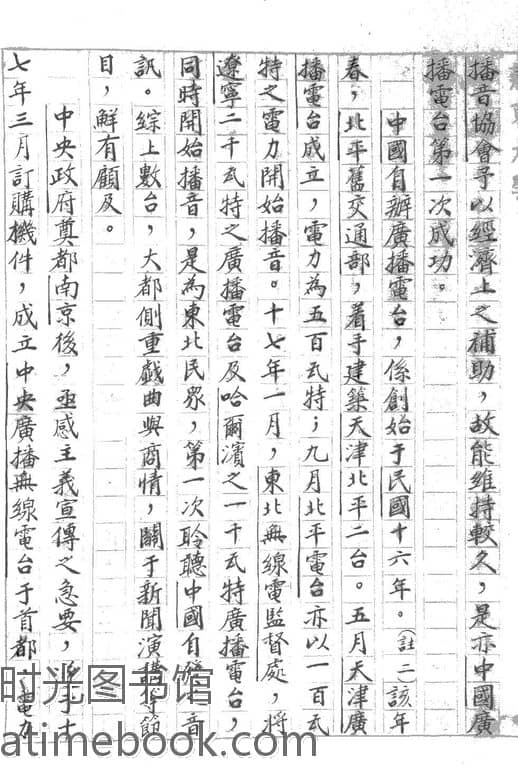 播音協會予以經濟上之補助，故能維持較久，是亦中國廣
播電台第一次成功。
中國自辦廣播電台，係創始于民國十六年。（註二）該年
春，北平舊交通部，着手建築天津北平二台。五月天津廣
播電台成立，電力為五百瓦特；九月北平電台亦以一百瓦
特之電力開始播音。十七年一月，東北無線電監督處，將
遼寧二千瓦特之廣播電台及哈爾濱之一千瓦特廣播電台，
同時開始播音，是為東北民眾，第一次聆聽中國自發之音
訊。綜上數台，大都側重戲曲與商情，關于新聞演講等節
目，鮮有顧及。
中央政府奠都南京後，亟感主義宣傳之急要，于十
七年三月訂購機件，成立中央廣播無線電台于首都，電力
时光图书馆
atimebook.com